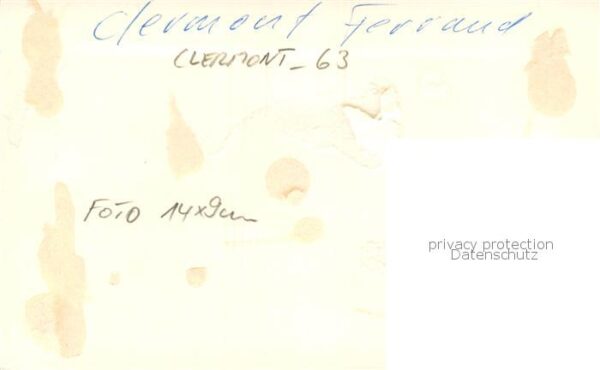 Clermont Ferrand
CLERMONT_63
FOTO 14x9cm
privacy protection
Datenschutz